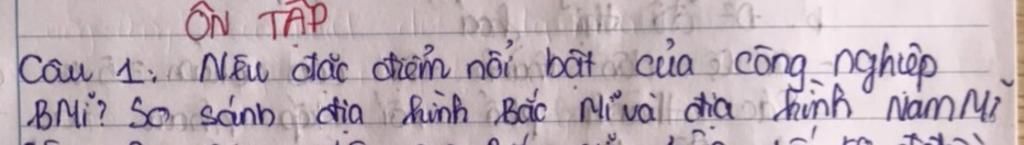 ÔN TẬP
Câu 1: Nêu đặc điểm nổi bật của công nghiệp
BMĩ? So sánh địa hình Bắc Mĩ và địa hình Nam Mĩ